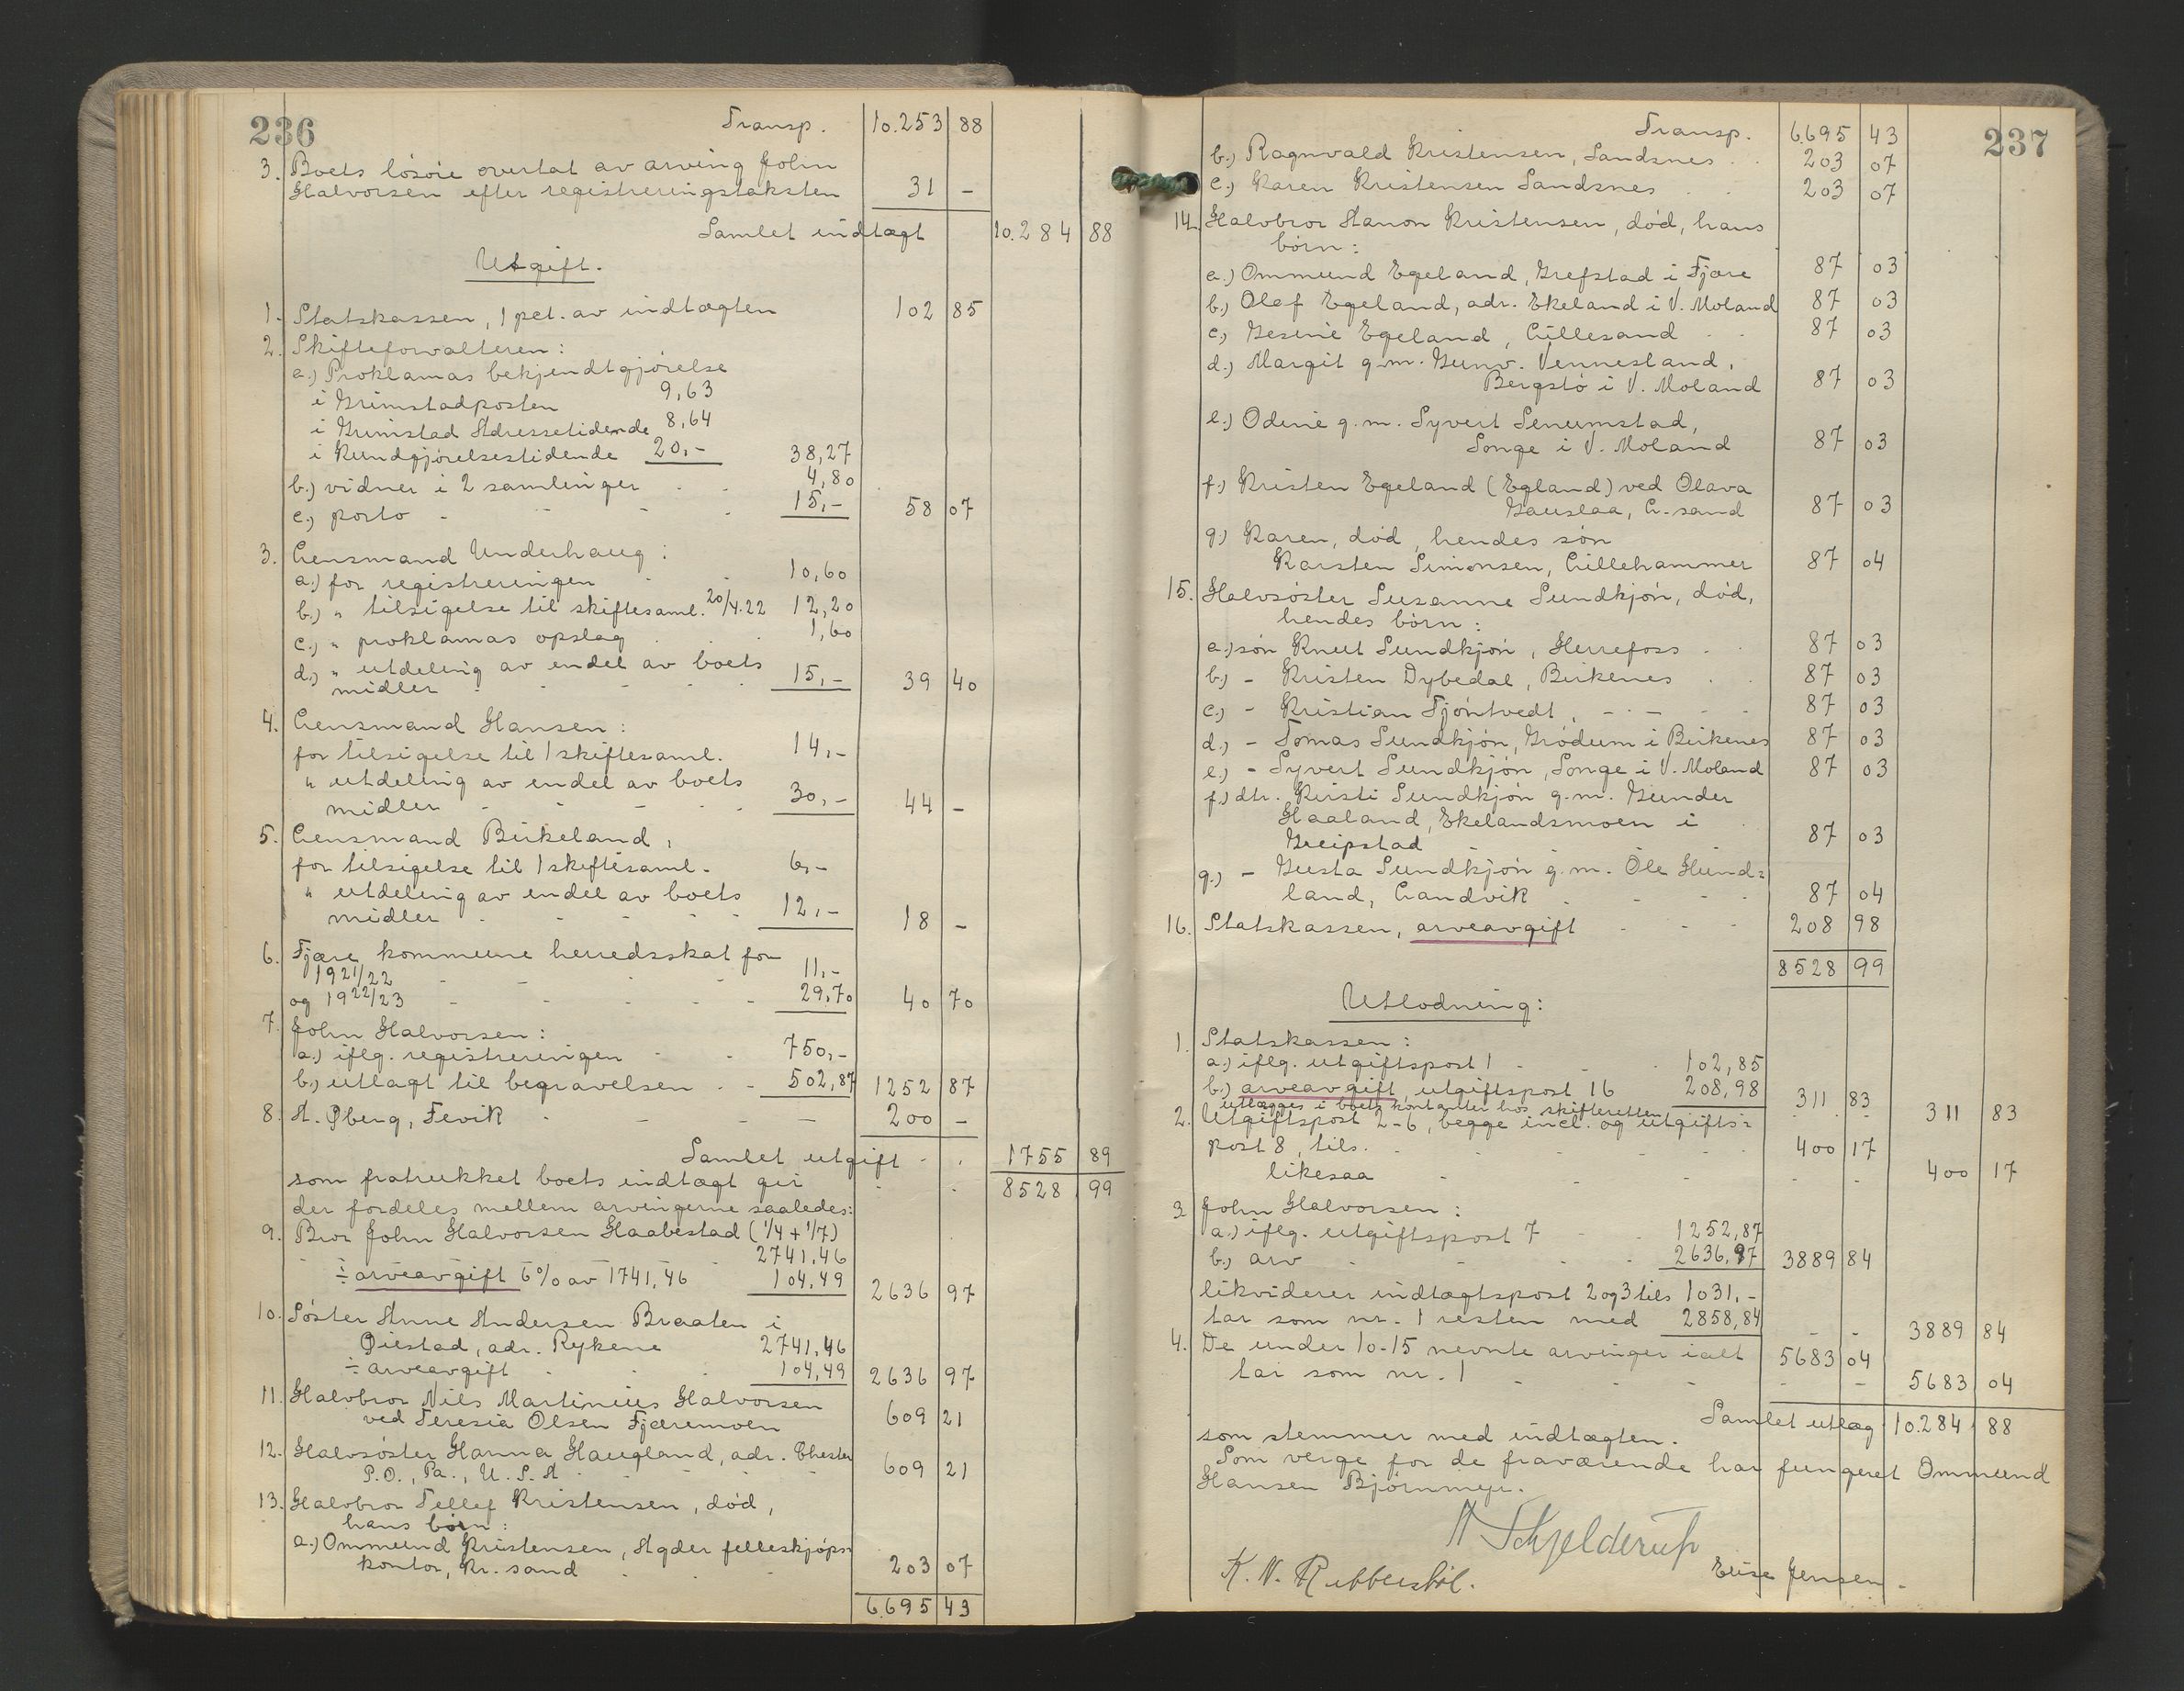 236
Transp. 10.253 88
3. Boets løsøie overtat av arving John
Halvorsen efter registreringstaksten 31 -
Samlet indtægt 10.284 88
Utgift.
1. Statskassen, 1 pct. av indtægten 102 85
2. Skifteforvalteren:
a.) Proklamas bekjendtgjørelse
i Grimstadposten 9,63
i Grimstad Adressetidende 8,64
i Kundgjørelsestidende 20,- 38,27
b.) vidner i 2 samlinger 4,80
c.) porto 15,- 58 07
3. Lensmand Underhaug:
a.) for registreringen 10,60
b.) " tilsigelse til skiftesaml. 20/4.22 12,20
c.) " proklamas opslag 1,60
d.) " utdeling av endel av boets
midler 15,- 39 40
4. Lensmand Hansen:
for tilsigelse til 1 skiftesaml. 14,-
" utdeling av endel av boets
midler 30,- 44 -
5. Lensmand Birkeland,
for tilsigelse til 1 skiftesaml. 6,-
" utdeling av endel av boets
midler 12,- 18 -
6. Fjære kommune herredsskat for
1921/22 11,-
og 1922/23 29,70 40 70
7. John Halvorsen:
a.) iflg. registreringen 750,-
b.) utlagt til begravelsen 502,87 1252 87
8. A. Øberg, Fevik 200 -
Samlet utgift 1755 89
som fratrukket boets indtægt gir 8528 99
der fordeles mellem arvingerne saaledes:
9. Bror John Halvorsen Haabestad (1/4 + 1/7)
2741,46
÷ arveavgift 6% av 1741,46 104,49 2636 97
10. Søster Anne Andersen Braaten i
Øiestad, adr. Rykene 2741,46
÷ arveavgift 104,49 2636 97
11. Halvbror Nils Martinius Halvorsen
ved Teresia Olsen Fjæremoen 609 21
12. Halvsøster Hanna Haugland, adr. Chester
P.O., Pa., U.S.A. 609 21
13. Halvbror Tellef Kristensen, død,
hans børn:
a.) Ommund Kristensen, Agder felleskjøps=
kontor, Kr.sand 203 07
6.695 43
237
Transp. 6.695 43
b.) Ragnvald Kristensen, Sandsnes 203 07
c.) Karen Kristensen Sandsnes 203 07
14. Halvbror Hanon Kristensen, død, hans
børn:
a.) Ommund Egeland, Grefstad i Fjære 87 03
b.) Olaf Egeland, adr. Ekeland i V. Moland 87 03
c.) Gesine Egeland, Lillesand 87 03
d.) Margit g.m. Gunv. Vennesland,
Bergstø i V. Moland 87 03
e.) Odine g.m. Syvert Senumstad,
Songe i V. Moland 87 03
f.) Kristen Egeland (Egland) ved Olava
Gauslaa, L.sand 87 03
g.) Karen, død, hendes søn
Karsten Simonsen, Lillehammer 87 04
15. Halvsøster Susanne Sundkjøn, død,
hendes børn:
a.) søn Knut Sundkjøn, Herrefoss 87 03
b.) - Kristen Dybedal, Birkenes 87 03
c.) - Kristian Tjøntvedt, - 87 03
d.) - Tomas Sundkjøn, Grødum i Birkenes 87 03
e.) - Syvert Sundkjøn, Songe i V. Moland 87 03
f.) dtr. Kirsti Sundkjøn g.m. Gunder
Haaland, Ekelandsmoen i
Greipstad 87 03
g.) - Gusta Sundkjøn g.m. Ole Hund=
land, Landvik 87 04
16. Statskassen, arveavgift 208 98
8528 99
Utlodning:
1. Statskassen:
a.) iflg. utgiftspost 1 102,85
b.) arveavgift, utgiftspost 16 208,98 311 83
utlægges i boets kontanter hos skifteretten 311 83
2. Utgiftspost 2-6, begge incl. og utgifts=
post 8, tils. 400 17
likesaa 400 17
3. John Halvorsen:
a.) iflg. utgiftspost 7 1252,87
b.) arv 2636,97 3889 84
likviderer indtægtspost 2 og 3 tils 1031.-
tar som nr. 1 resten med 2858,84 3889 84
4. De under 10-15 nevnte arvinger ialt 5683 04
tar som nr. 1 5683 04
Samlet utlæg 10.284 88
som stemmer med indtægten.
Som verge for de fraværende har fungeret Ommund
Hansen Bjørnmyr.
A Schjelderup
K. N. Rubbestøl. Elise Jensen.